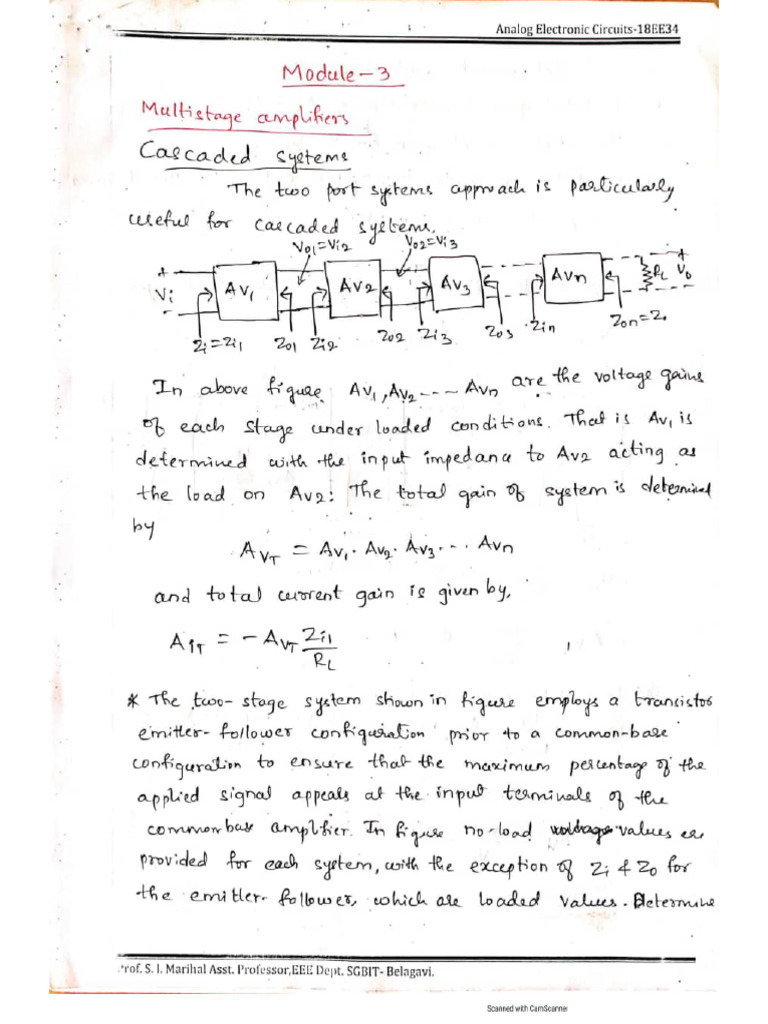 Analog Electronic Circuits-18EE34
Module-3
Multistage amplifiers
Cascaded systems
The two port systems approach is particularly
useful for cascaded systems.
Vo1=Vi2 Vo2=Vi3
+ AV1 AV2 AV3 AVn RL + Vo
Vi
- -
Zi=Zi1 Zo1 Zi2 Zo2 Zi3 Zo3 Zin Zon=Zo
In above figure AV1, AV2 --- AVn are the voltage gains
of each stage under loaded conditions. That is AV1 is
determined with the input impedance to AV2 acting as
the load on AV2: The total gain of system is determined
by
AVT = AV1 · AV2 · AV3 · -- AVn
and total current gain is given by,
AiT = - AVT Zi1/RL
* The two-stage system shown in figure employs a transistor
emitter-follower configuration prior to a common-base
configuration to ensure that the maximum percentage of the
applied signal appeals at the input terminals of the
common base amplifier. In figure no-load values are
provided for each system, with the exception of Zi & Zo for
the emitter-follower, which are loaded values. Determine
Prof. S. I. Marihal Asst. Professor,EEE Dept. SGBIT- Belagavi.
Scanned with CamScanner